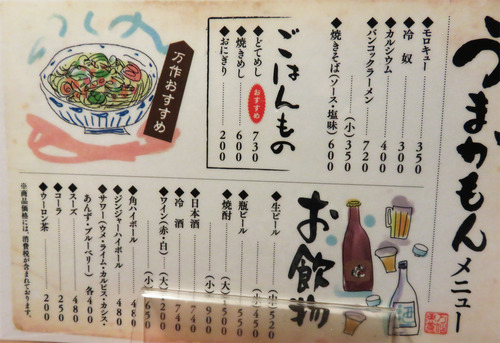 うまかもん メニュー
◆モロキュー 350
◆冷奴 300
◆カルシウム 400
◆バンコックラーメン 720
(小) 350
◆焼きそば(ソース・塩味) 600
ごはんもの
◆どてめし おすすめ 730
◆焼きめし 600
◆おにぎり 200
万作おすすめ
お飲物
◆生ビール (中) 520
(小) 450
◆瓶ビール (大)
(小) 500
◆焼酎 900
(大) 500
◆日本酒 740
◆冷酒 740
◆ワイン(赤・白) (大) 200
(小) 650
◆角ハイボール 480
◆ジンジャーハイボール 480
◆サワー(ウメ・ライム・カルピス・カシス・
あんず・ブルーベリー) 各400
◆スーズ 480
◆コーラ 250
◆ウーロン茶 200
※商品価格には、消費税が含まれております。